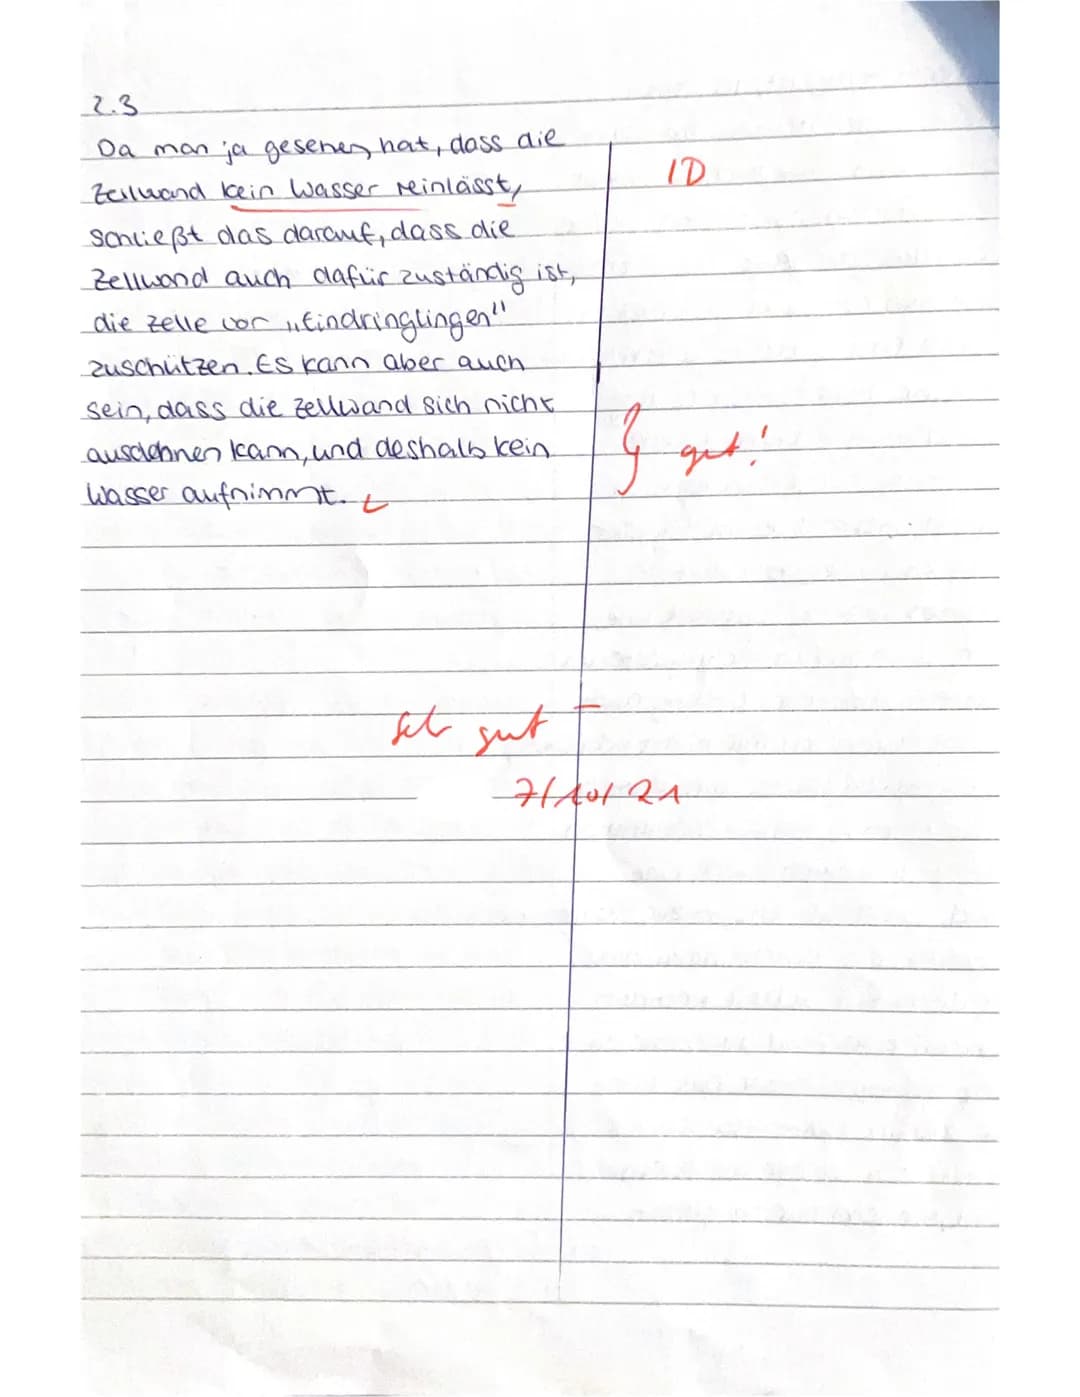 2.3
Da man ja gesehen hat, dass die
Zellwand kein Wasser reinlässt,
1D
schließt das darauf, dass die
Zellwand auch dafür zuständig ist,
die Zelle vor „Eindringlingen"
zuschützen. Es kann aber auch
sein, dass die Zellwand sich nicht
ausdehnen kann, und deshalb kein
gut!
Wasser aufnimmt.
Sehr gut –
7/10/21